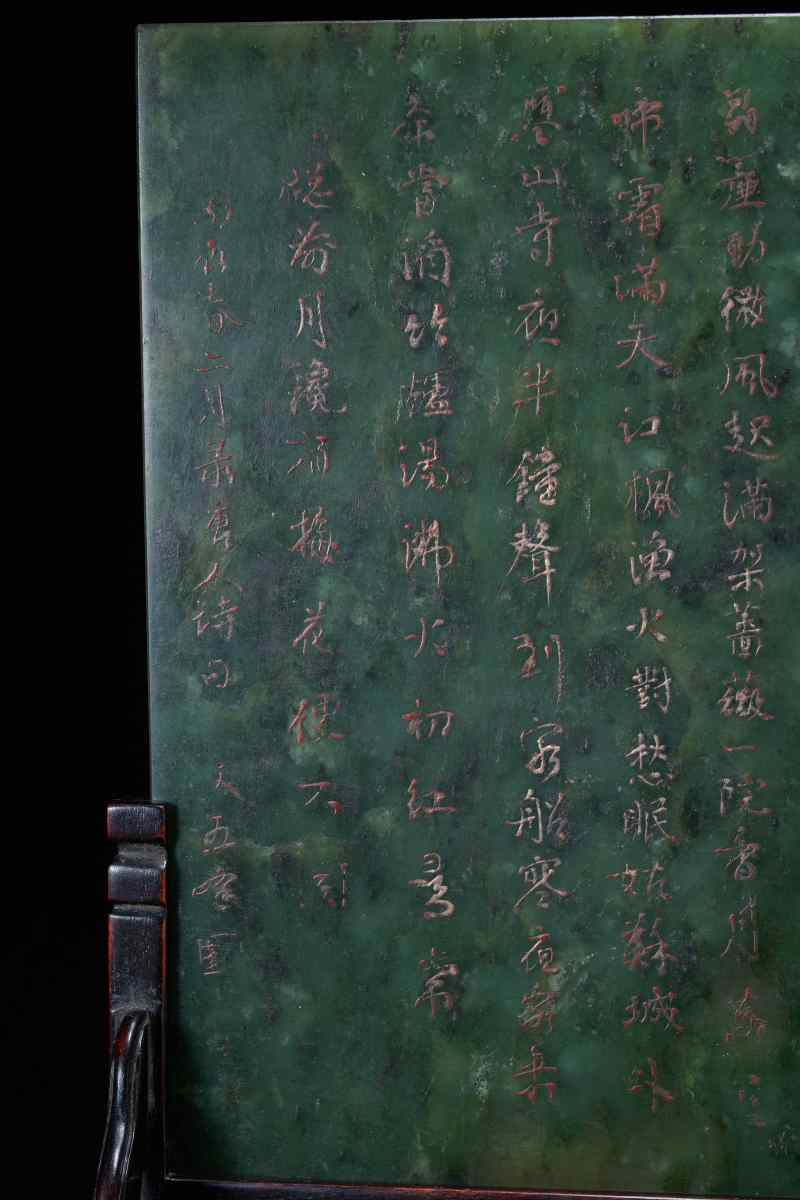 晶簾動微風起滿架薔薇一院香月落烏
啼霜滿天江楓漁火對愁眠姑蘇城外
寒山寺夜半鐘聲到客船寒夜客来
茶當酒竹爐湯沸火初紅尋常
窓前月纔有梅花便不同
春二月录唐人詩句 文五峯圖